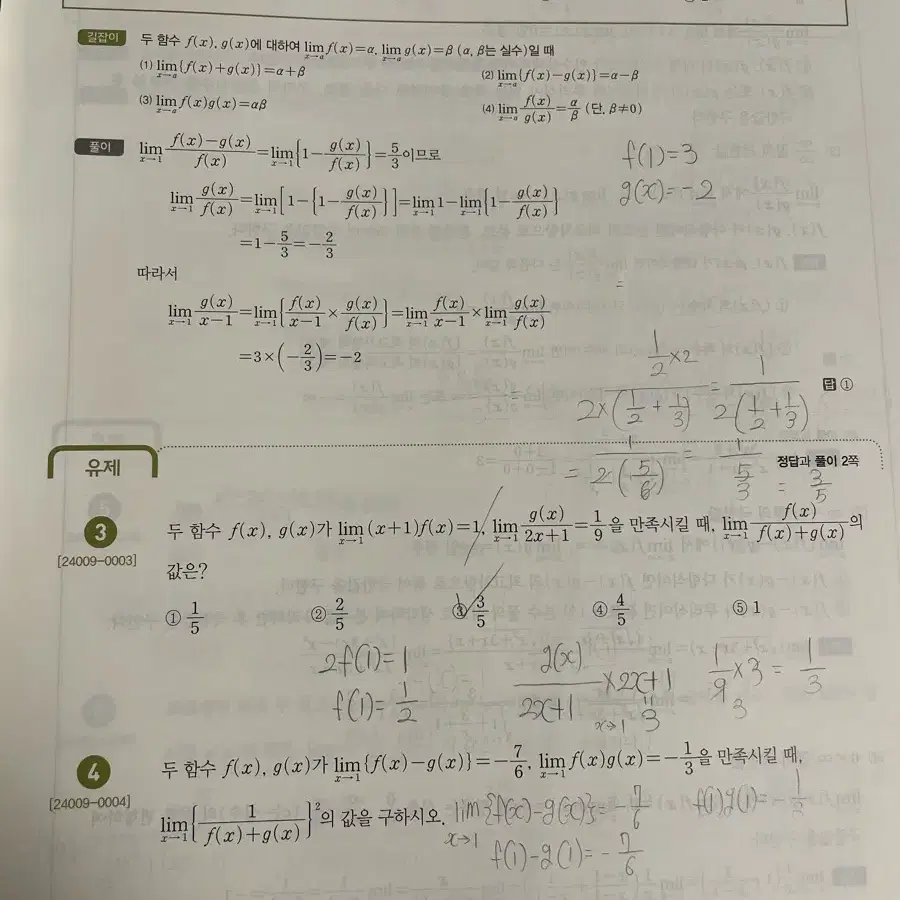 길잡이 두 함수 f(x), g(x)에 대하여 lim_{x→a} f(x)=α, lim_{x→a} g(x)=β (α, β는 실수)일 때
(1) lim_{x→a} {f(x)+g(x)}=α+β (2) lim_{x→a} {f(x)-g(x)}=α-β
(3) lim_{x→a} f(x)g(x)=αβ (4) lim_{x→a} f(x)/g(x)=α/β (단, β≠0)
풀이 lim_{x→1} (f(x)-g(x))/f(x)=lim_{x→1} {1-g(x)/f(x)}=5/3이므로
f(1)=3
lim_{x→1} g(x)/f(x)=lim_{x→1} [1-{1-g(x)/f(x)}]=lim_{x→1} 1-lim_{x→1} {1-g(x)/f(x)}
g(x)=-2
=1-5/3=-2/3
따라서
=
lim_{x→1} g(x)/(x-1)=lim_{x→1} {f(x)/(x-1)×g(x)/f(x)}=lim_{x→1} f(x)/(x-1)×lim_{x→1} g(x)/f(x)
=3×(-2/3)=-2
답 ①
= (1/2×2)/(2×(1/2+1/3)) = 1/(2(1/2+1/3))
= 1/(2(5/6)) = 1/(5/3) = 3/5
유제
정답과 풀이 2쪽
3 두 함수 f(x), g(x)가 lim_{x→1} (x+1)f(x)=1, lim_{x→1} g(x)/(2x+1)=1/9을 만족시킬 때, lim_{x→1} f(x)/(f(x)+g(x))의
[24009-0003]
값은?
① 1/5 ② 2/5 ③ 3/5 ④ 4/5 ⑤ 1
2f(1)=1 g(x)/(2x+1) ×2x+1 1/9×3 = 1/3
f(1)=1/2 x→1 3 3
4 두 함수 f(x), g(x)가 lim_{x→1} {f(x)-g(x)}=-7/6, lim_{x→1} f(x)g(x)=-1/3을 만족시킬 때,
[24009-0004]
lim_{x→1} {1/(f(x)+g(x))}²의 값을 구하시오.
lim_{x→1} {f(x)-g(x)}=-7/6 f(1)g(1)=-1/3
f(1)-g(1)=-7/6